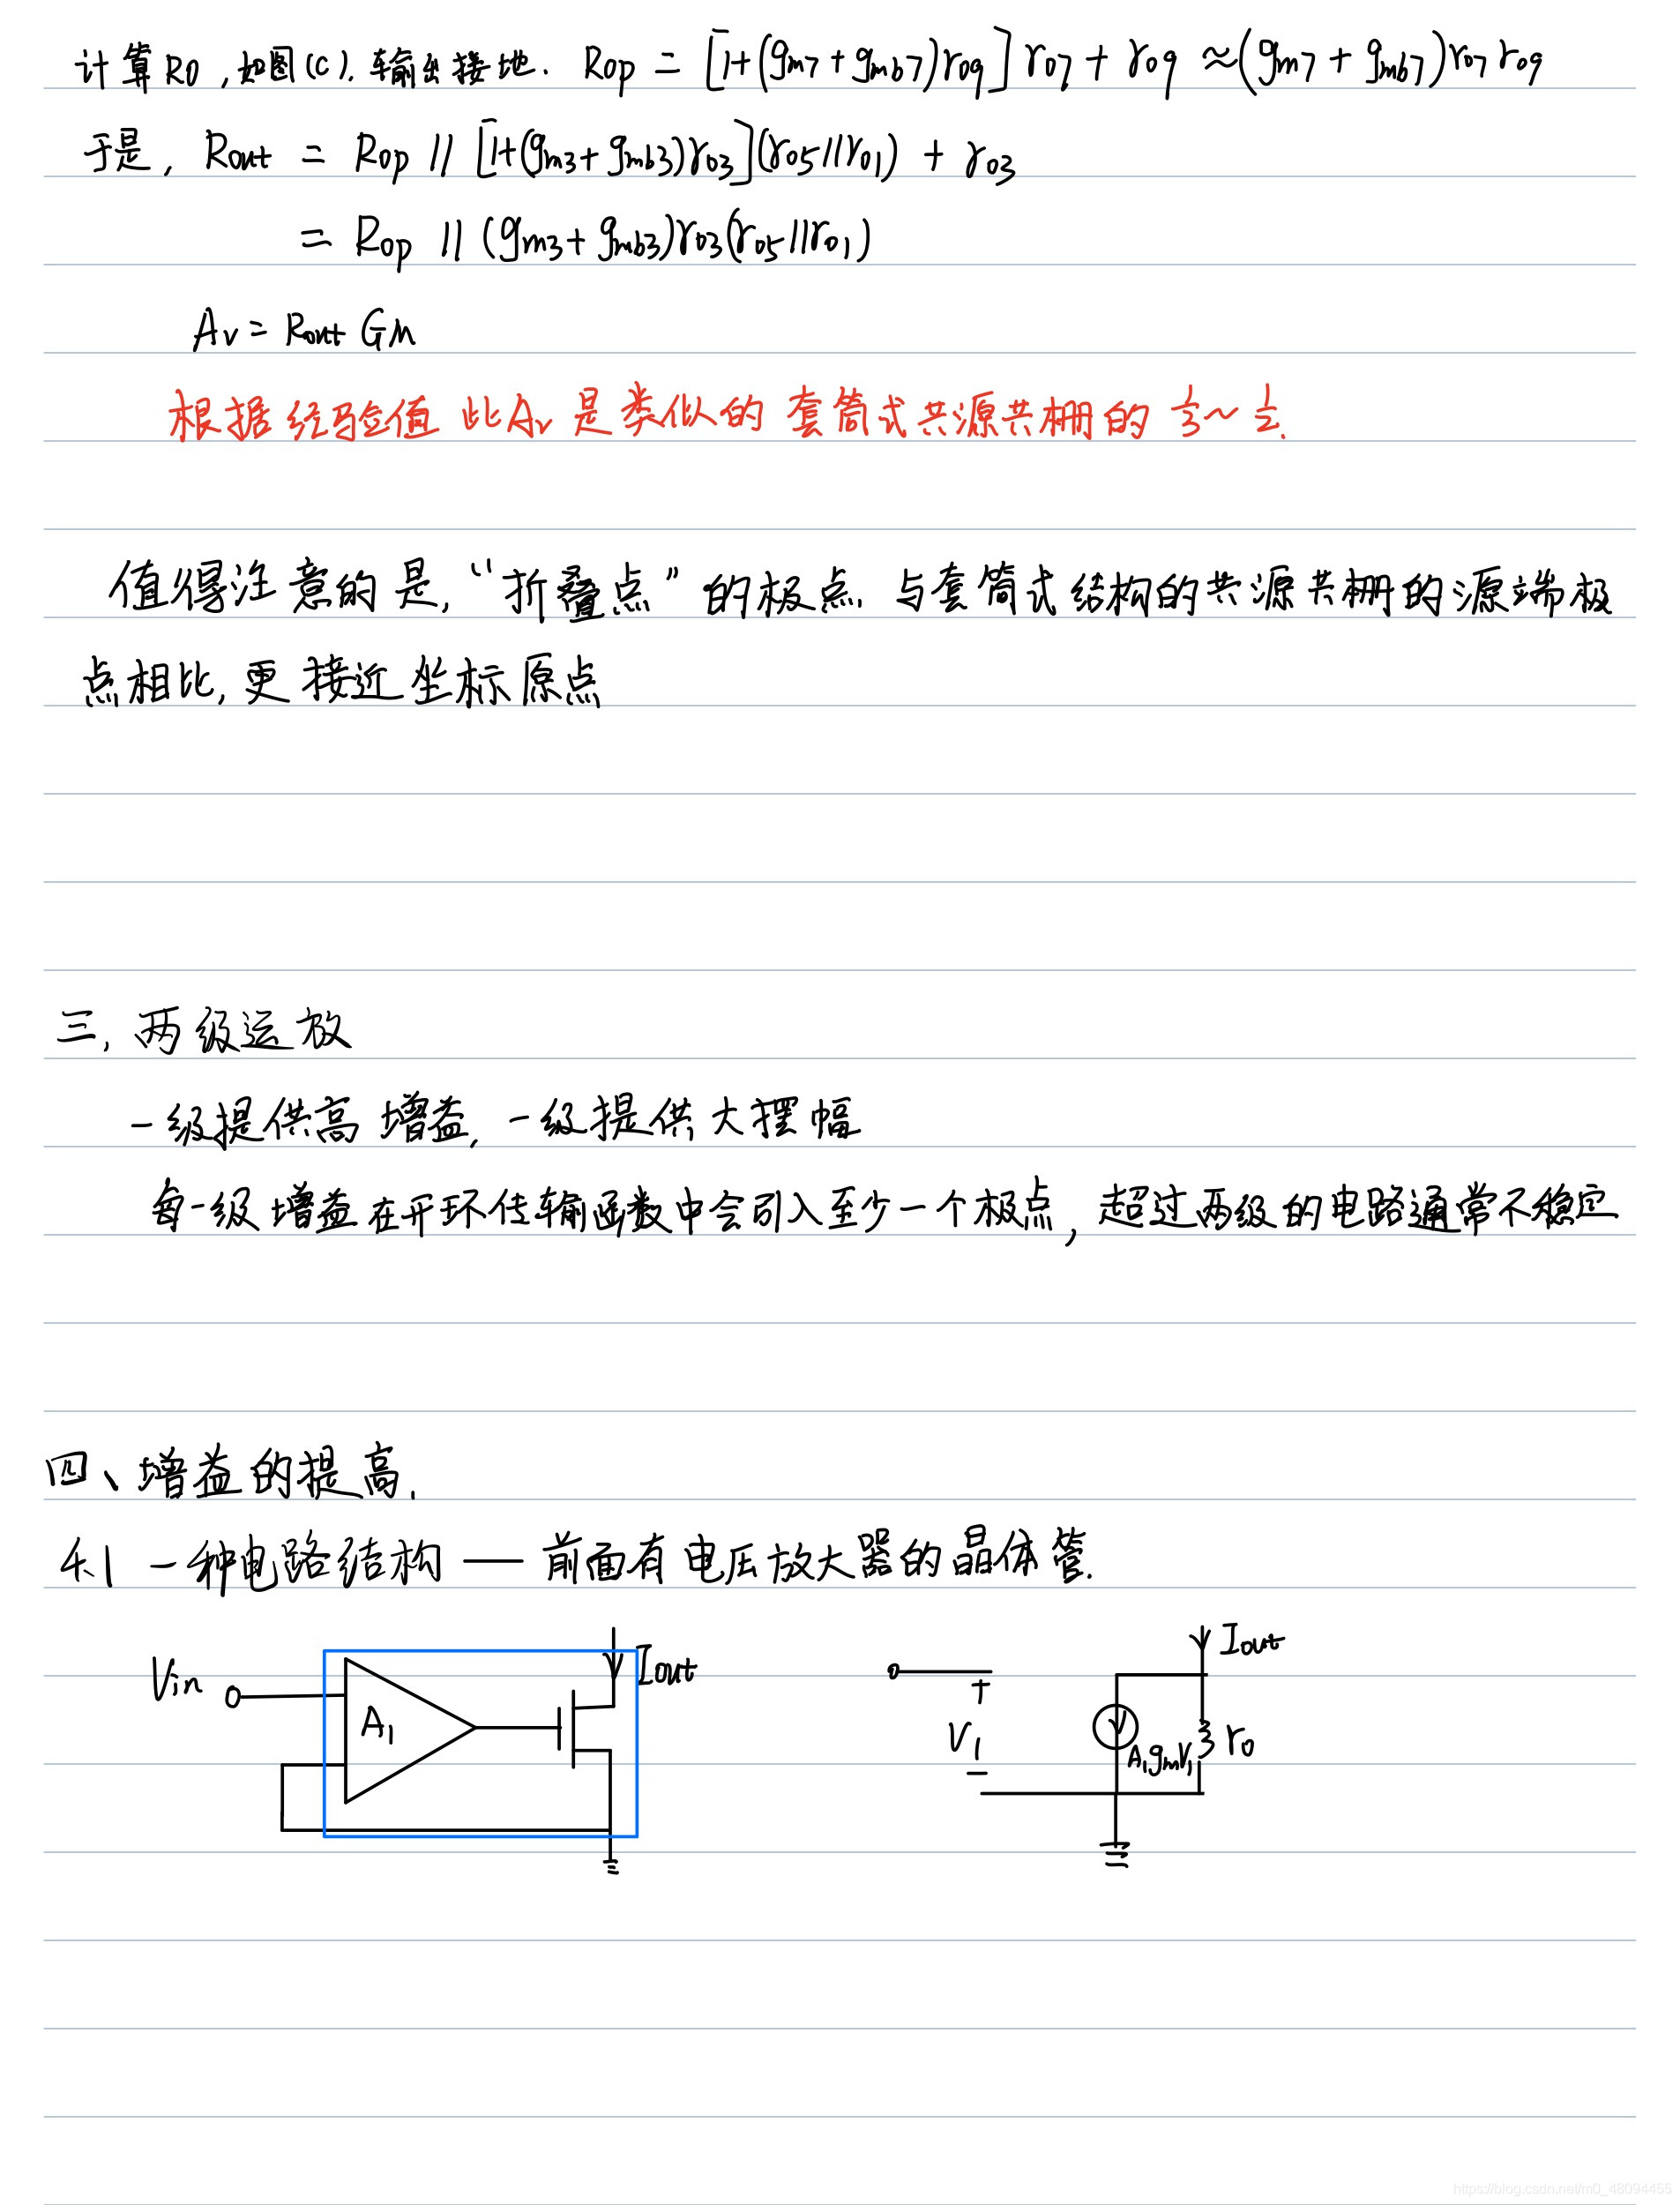 计算R0,如图(c).输出接地. Rop = [1+(gm7+gmb7)ro9]ro7+ro9 ≈(gm7+gmb7)ro7ro9
于是, Rout = Rop // [1+(gm3+gmb3)ro3](ro5//ro1) + ro3
= Rop // (gm3+gmb3)ro3(ro5//ro1)
Av = Rout Gm
根据经验值 此Av 是类似的 套筒式共源共栅的 1/3~1/2.
值得注意的是,“折叠点”的极点.与套筒式结构的共源共栅的源端极
点相比,更接近坐标原点
三,两级运放
一级提供高增益,一级提供大摆幅
每一级增益在开环传输函数中会引入至少一个极点,超过两级的电路通常不稳定
四、增益的提高.
4.1 一种电路结构——前面有电压放大器的晶体管.
Vin A1 Iout
Iout
+
V1
-
A1gmV1 ro
https://blog.csdn.net/m0_48094455